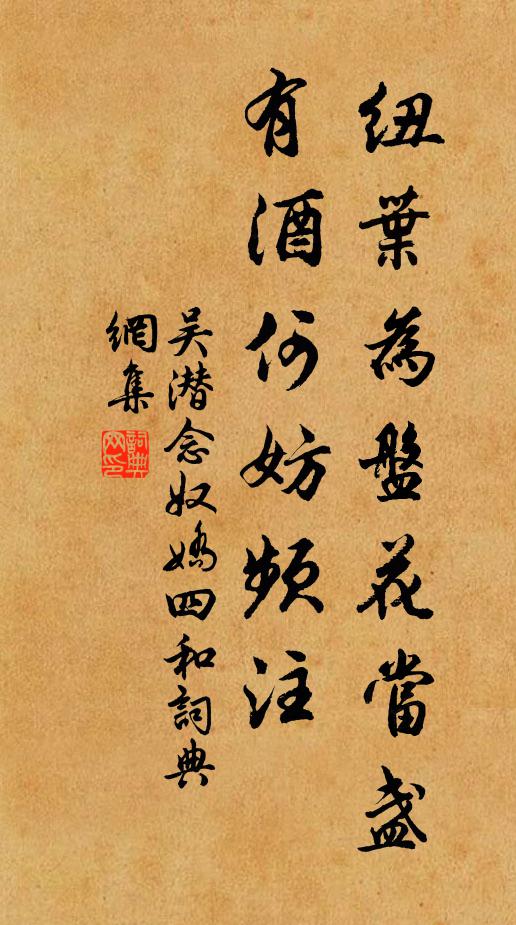 紐葉為盤花當盞
有酒何妨頻注
吳潛念奴嬌四和詞典
網集
詞典
网印